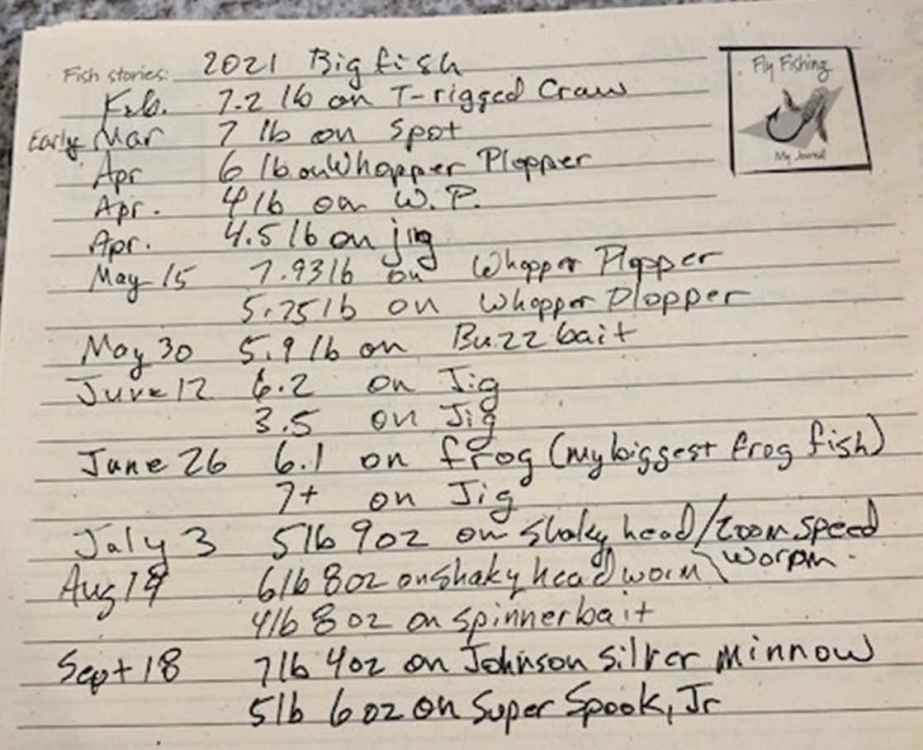 Fish stories: 2021 Big fish
Fly Fishing
My Journal
Feb. 7.2 lb on T-rigged Craw
Early Mar 7 lb on Spot
Apr 6 lb on Whopper Plopper
Apr. 4 lb on W.P.
Apr. 4.5 lb on jig
May 15 7.93 lb on Whopper Plopper
5.75 lb on Whopper Plopper
May 30 5.9 lb on Buzz bait
June 12 6.2 on Jig
3.5 on Jig
June 26 6.1 on frog (my biggest frog fish)
7+ on Jig
July 3 5 lb 9 oz on shaky head/zoom speed
worm.
Aug 6 lb 8 oz on shaky head worm
4 lb 8 oz on spinnerbait
Sept 18 7 lb 4 oz on Johnson Silver Minnow
5 lb 6 oz on Super Spook, Jr